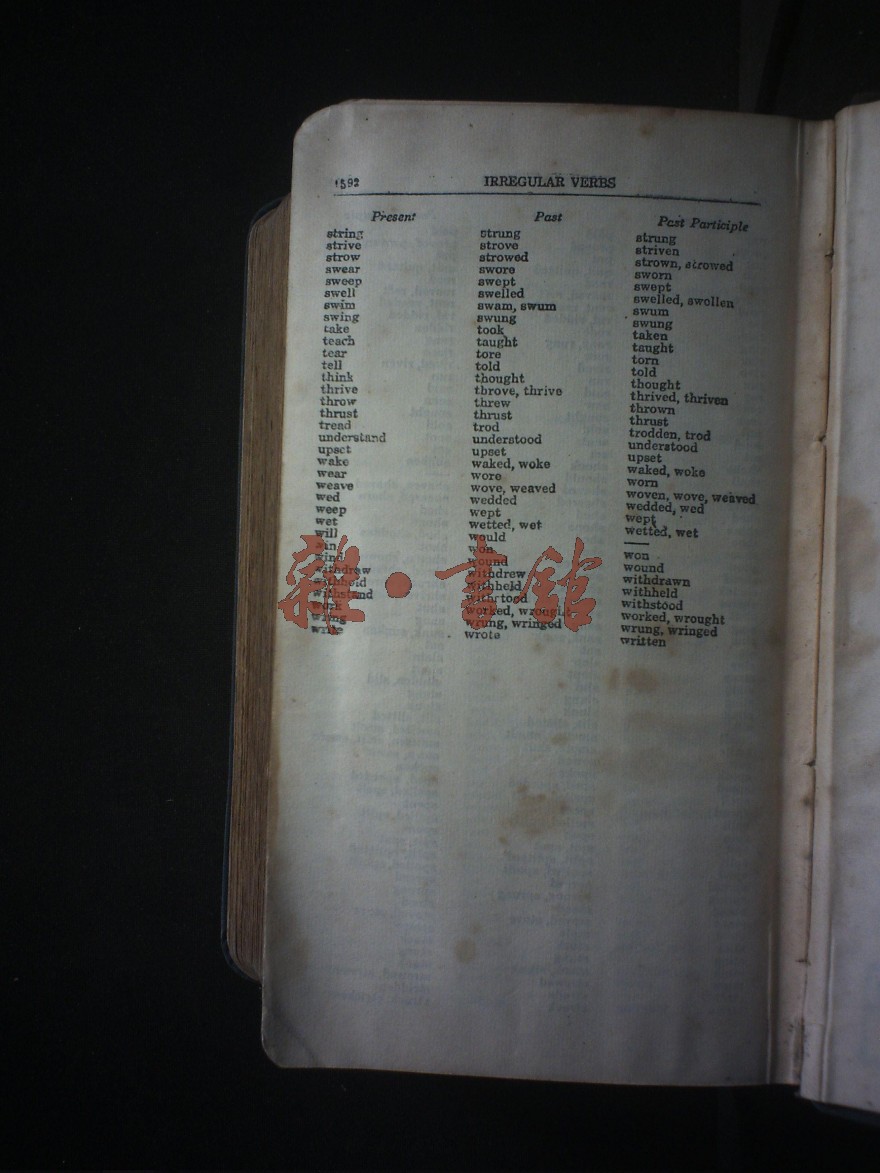 1592 IRREGULAR VERBS
Present Past Past Participle
string strung strung
strive strove striven
strow strowed strown, strowed
swear swore sworn
sweep swept swept
swell swelled swelled, swollen
swim swam, swum swum
swing swung swung
take took taken
teach taught taught
tear tore torn
tell told told
think thought thought
thrive throve, thrive thrived, thriven
throw threw thrown
thrust thrust thrust
tread trod trodden, trod
understand understood understood
upset upset upset
wake waked, woke waked, woke
wear wore worn
weave wove, weaved woven, wove, weaved
wed wedded wedded, wed
weep wept wept
wet wetted, wet wetted, wet
will would ——
win won won
wind wound wound
withdraw withdrew withdrawn
withhold withheld withheld
withstand withstood withstood
work worked, wrought worked, wrought
wring wrung, wringed wrung, wringed
write wrote written
雜·書館